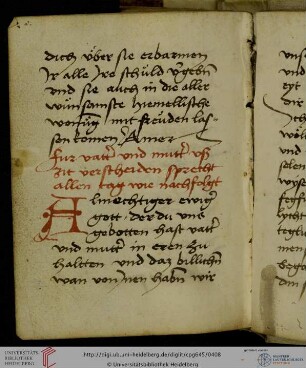 dich über sie erbarmen
Jr alle Jre schüld v'gebn
vnd sie auch in die aller
wünsamste hiemellische
wonüg mit freüden las-
sen komen Amen
Für vatt' vnd mutt' vß
Zit verscheiden sprecht
allen tag wie nachfolgt
Almechtiger ewig'
gott der du vns
gebotten hast vatt'
vnd mutt' in eren zu
haltten vnd das billichn
wan von Jnen habn wir
UNIVERSITÄTS-
BIBLIOTHEK
HEIDELBERG
http://digi.ub.uni-heidelberg.de/diglit/cpg645/0408
© Universitätsbibliothek Heidelberg